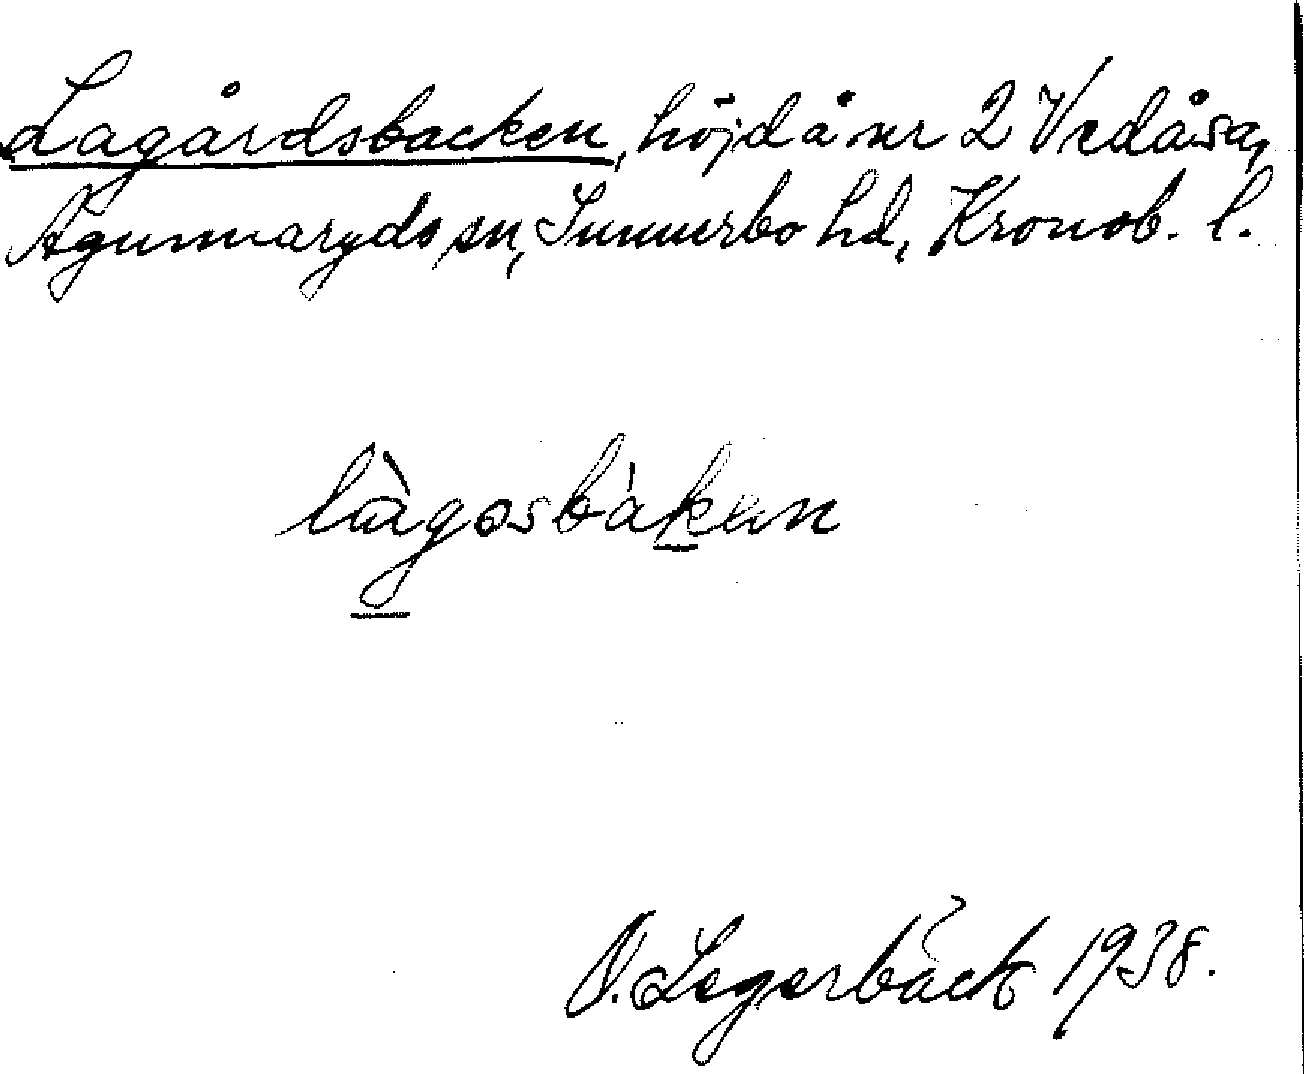 Lagårdsbacken, höjd å nr 2 Vedåsa,
Agunnaryds sn, Sunnerbo hd, Kronob. l.
làgəsbàkən
O. Lagerbäck 1938.